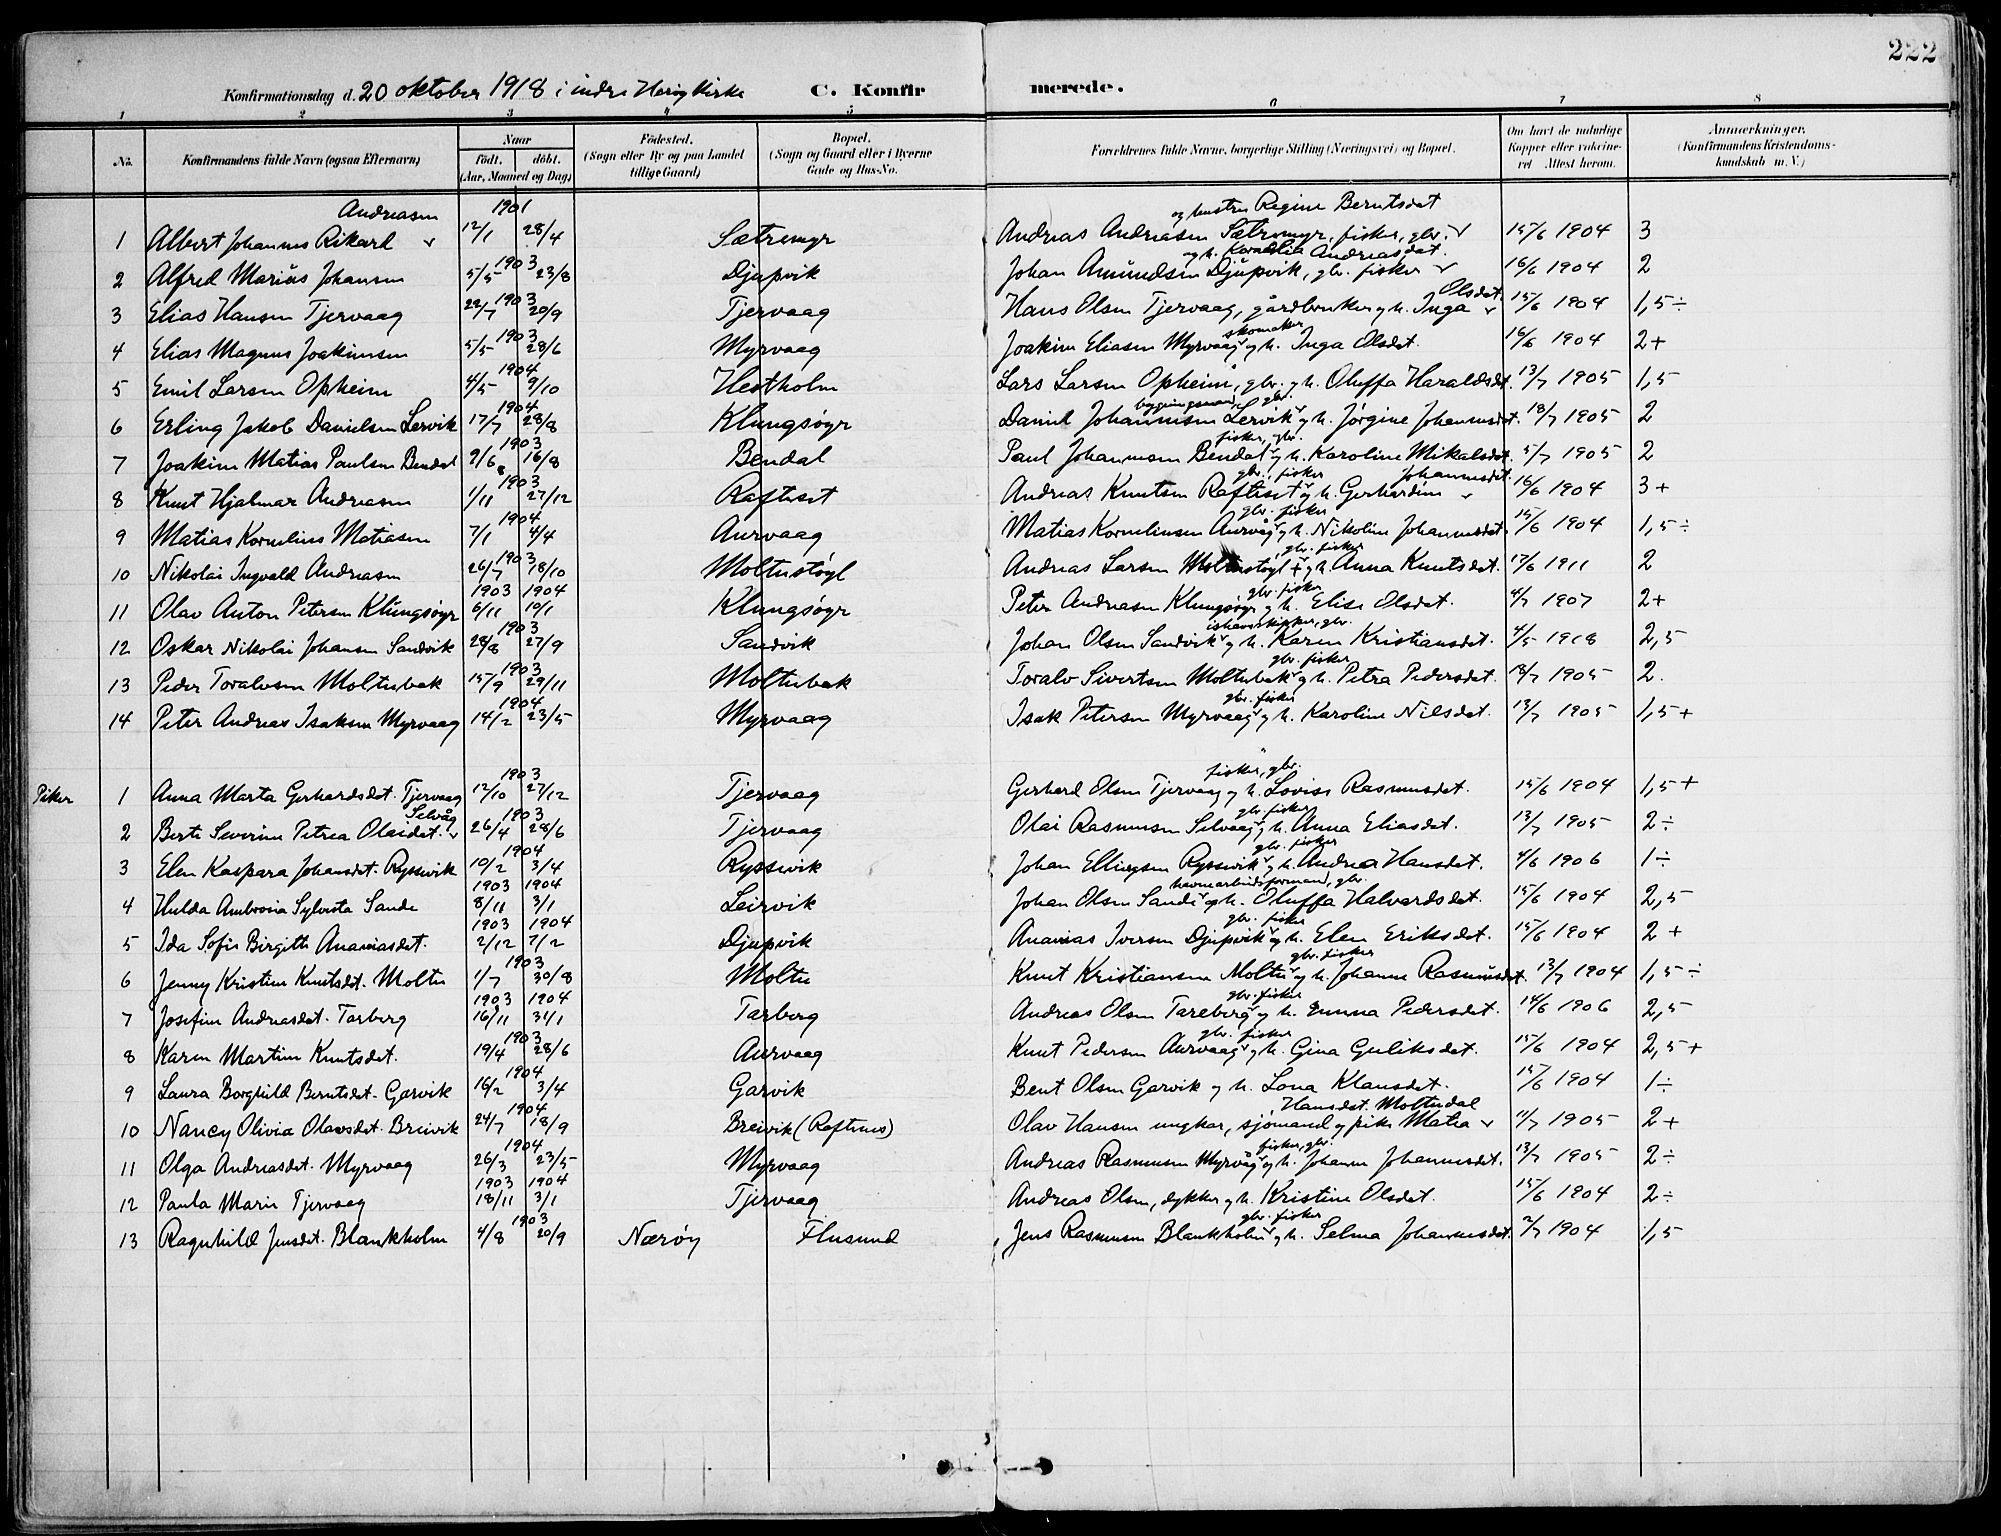 222
Konfirmationsdag d. 20 oktober 1918 i indre Herøy Kirke C. Konfirmerede.
1 2 3 4 5 6 7 8
No. Konfirmandens fulde Navn (ogsaa Efternavn) Naar födt. döbt. (Aar, Maaned og Dag) Födested. (Sogn eller By og paa Landet tillige Gaard) Bopæl. (Sogn og Gaard eller i Byerne Gade og Hus-No. Forældrenes fulde Navne, borgerlige Stilling (Næringsvei) og Bopæl. Om havt de naturlige Kopper eller vakcineret Attest herom. Anmærkninger. (Konfirmandens Kristendomskundskab m. V.)
Andreasen 1901 og hustru Regine Berntsdat
1 Albert Johannes Rikard 12/1 28/4 Sætremyr Andreas Andreasen Sætremyr, fisker, gbr. 15/6 1904 3
1903 og h. Kornelia Andreasdat.
2 Alfred Marius Johansen 5/5 23/8 Djupvik Johan Amundsen Djupvik, gbr. fisker 16/6 1904 2
1903 Olsdat.
3 Elias Hansen Tjervaag 22/7 20/9 Tjervaag Hans Olsen Tjervaag, gårdbruker og h. Inga 15/6 1904 1,5 ÷
1903 skomaker
4 Elias Magnus Joakimsen 5/5 28/6 Myrvaag Joakim Eliasen Myrvaag og h. Inga Olsdat. 16/6 1904 2+
1904
5 Emil Larsen Opheim 4/5 9/10 Hestholm Lars Larsen Opheim, gbr. og h. Oluffa Haraldsdat. 13/7 1905 1,5
1904 bygningsmand, gbr.
6 Erling Jakob Danielsen Lervik 17/7 28/8 Klungsøyr Daniel Johannesen Lervik og h. Jørgine Johannesdat. 18/7 1905 2
1903 fisker, gbr.
7 Joakim Matias Paulsen Bendal 9/6 16/8 Bendal Paul Johannesen Bendal og h. Karoline Mikalsdat. 5/7 1905 2
1903 gbr. fisker Johannesdat.
8 Knut Hjalmar Andreasen 1/11 27/12 Rafteset Andreas Knutsen Rafteset og h. Gerhardine 16/6 1904 3+
1904 gbr. fisker
9 Matias Kornelius Matiasen 7/1 4/4 Aurvaag Matias Korneliusen Aurvåg og h. Nikoline Johannesdat. 15/6 1904 1,5 ÷
1903 gbr. fisker
10 Nikolai Ingvald Andreasen 26/7 18/10 Moltustøyl Andreas Larsen Moltustøyl + og h. Anna Knutsdat. 17/6 1911 2
1903 1904 gbr. fisker
11 Olav Anton Petersen Klungsøyr 6/11 10/1 Klungsøyr Peter Andreasen Klungsøyr og h. Elise Olsdat. 4/7 1907 2+
1903 ishavsskipper, gbr.
12 Oskar Nikolai Johansen Sandvik 28/8 27/9 Sandvik Johan Olsen Sandvik og h. Karen Kristiansdat. 4/5 1918 2,5
1903 gbr. fisker
13 Peder Toralvsen Moltubak 15/9 29/11 Moltubak Toralv Sivertsen Moltubak og h. Petra Pedersdat. 18/7 1905 2.
1904 gbr. fisker
14 Peter Andreas Isaksen Myrvaag 14/2 23/5 Myrvaag Isak Petersen Myrvaag og h. Karoline Nilsdat. 13/7 1905 1,5+
1903 fisker, gbr.
Piker 1 Anna Marta Gerhardsdat. Tjervaag 12/10 27/12 Tjervaag Gerhard Olsen Tjervaag og h. Lovise Rasmusdat. 15/6 1904 1,5+
Selvåg 1903 gbr. fisker
2 Berte Severine Petrea Olaidat. 26/4 28/6 Tjervaag Olai Rasmusen Selvaag og h. Anna Eliasdat. 13/7 1905 2÷
1904 gbr. fisker
3 Elen Kaspara Johansdat. Ryssevik 10/2 3/4 Ryssevik Johan Ellingsen Ryssevik og h. Andrea Hansdat. 4/6 1906 1÷
1903 1904 havnearbeidsformand, gbr.
4 Hulda Ambrosia Sylvista Sande 8/11 3/1 Leirvik Johan Olsen Sande og h. Oluffa Halvardsdat. 15/6 1904 2,5
1903 1904 gbr. fisker
5 Ida Sofie Birgitte Ananiasdat. 2/12 7/2 Djupvik Ananias Iversen Djupvik og h. Elen Eriksdat. 15/6 1904 2+
1903 gbr. fisker
6 Jenny Kristine Knutsdat. Moltu 1/7 30/8 Moltu Knut Kristiansen Moltu og h. Johanne Rasmusdat. 13/7 1904 1,5 ÷
1903 1904 gbr. fisker
7 Josefine Andreasdat. Tarberg 16/11 31/1 Tarberg Andreas Olsen Tareberg og h. Emma Pedersdat. 14/6 1906 2,5
1903 gbr. fisker
8 Karen Martine Knutsdat. 19/4 28/6 Aurvaag Knut Pedersen Aurvaag og h. Gina Guliksdat. 15/6 1904 2,5+
1904
9 Laura Borghild Berntsdat. Garvik 16/2 3/4 Garvik Bent Olsen Garvik og h. Lona Klausdat. 15/6 1904 1÷
1904 Hansdat. Moltudal
10 Nancy Olivia Olavsdat. Breivik 24/7 18/9 Breivik (Raftenes) Olav Hansen ungkar, sjømand og pike Matea 11/7 1905 2+
1904 fisker, gbr.
11 Olga Andreasdat. Myrvaag 26/3 23/5 Myrvaag Andreas Rasmusen Myrvåg og h. Johanne Johannesdat. 13/7 1905 2÷
1903 1904
12 Paula Marie Tjervaag 18/11 3/1 Tjervaag Andreas Olsen, dykker og h. Kristine Olsdat. 15/6 1904 2÷
1903 gbr. fisker
13 Ragnhild Jensdat. Blankholm 4/8 20/9 Nærøy Flusund Jens Rasmusen Blankholm og h. Selma Johannesdat. 2/7 1904 1,5